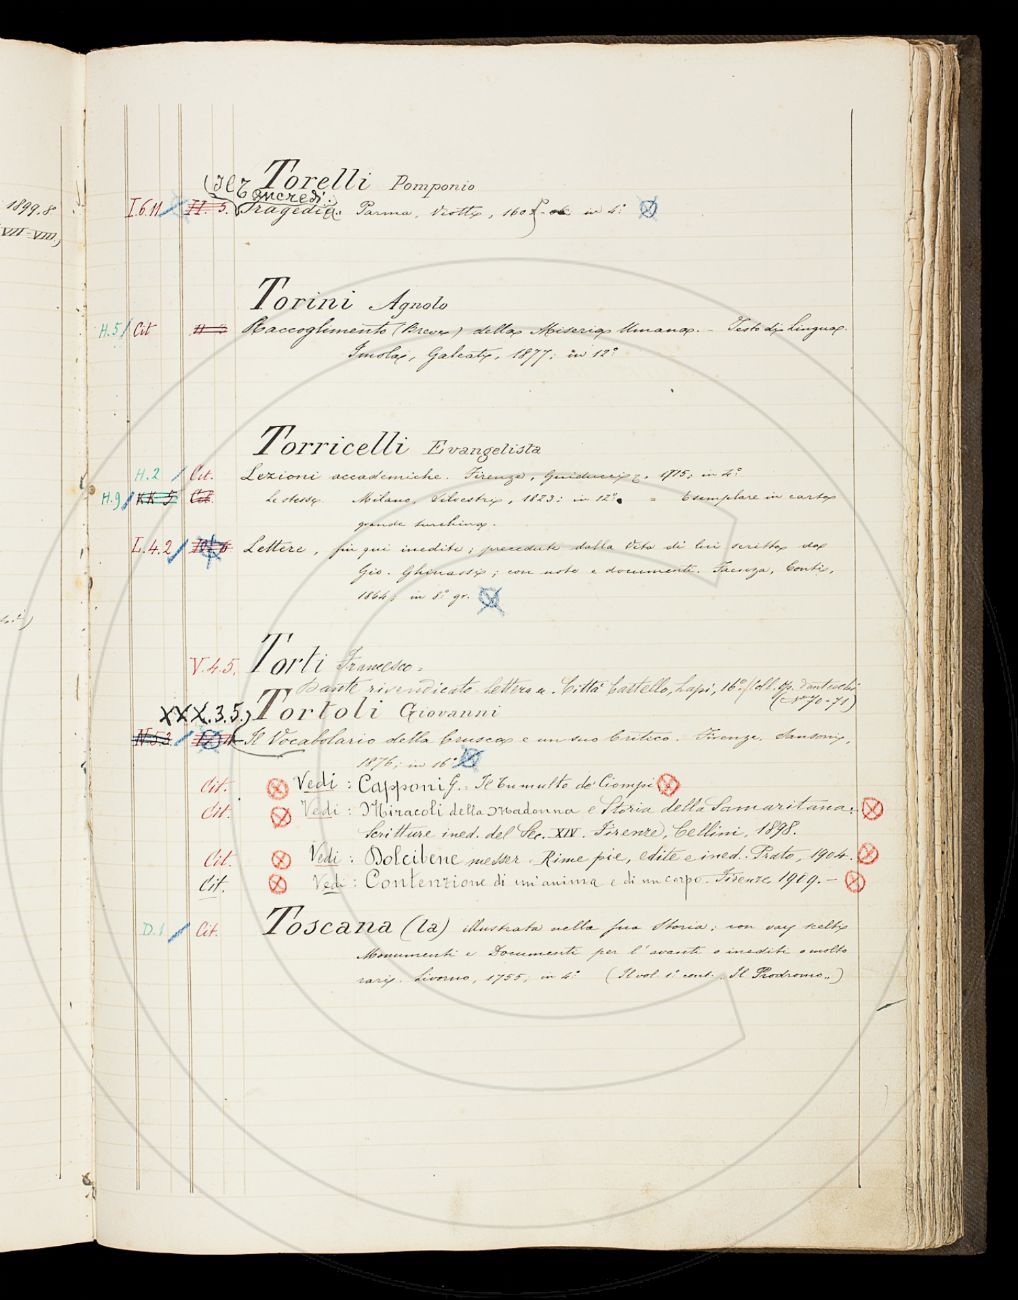 1899.8
VII-VIII)
Torelli Pomponio
(Il Tancredi.
I.6.11 Tragedia. Parma, Viotti, 1605 in 4.°
Torini Agnolo
H.5 Cit Raccoglimento (Breve) della Miseria Umana. - Testo di Lingua.
Imola, Galeati, 1877; in 12.°
Torricelli Evangelista
H.2 Cit. Lezioni accademiche. Firenze, Guiducci, 1715; in 4.°
H.9 KK 5 Cit Le stesse. Milano, Silvestri, 1823; in 12.° = Esemplare in carta
grande turchina.
L.4.2 Lettere, fin qui inedite; precedute dalla Vita di lui scritta da
Gio. Ghinassi; con note e documenti. Faenza, Conti,
1864; in 8.° gr.
V.4.5. Torti Francesco =
Dante rivendicato. Lettera. Città Castello, Lapi, 16° (Coll. Op. Dantesche
(N° 70-71)
XXX.3.5. Tortoli Giovanni
N.5.2 Il Vocabolario della Crusca e un suo Critico. Firenze, Sansoni,
1876; in 16.°
Cit. Vedi: Capponi G. = Il Tumulto de' Ciompi
Cit. Vedi: Miracoli della Madonna e Storia della Samaritana:
Scritture ined. del Sec. XIV. Firenze, Cellini, 1898.
Cit. Vedi: Dolcibene messer. Rime pie, edite e ined. Prato, 1904.
Cit. Vedi: Contenzione di un'anima e di un corpo. Firenze 1909.-
D.1 Cit. Toscana (la) illustrata nella sua Storia; con varj scelti
Monumenti e Documenti per l'avanti o inediti o molto
rari. Livorno, 1755, in 4.° (Il vol. 1.° cont. Il Prodromo.,)